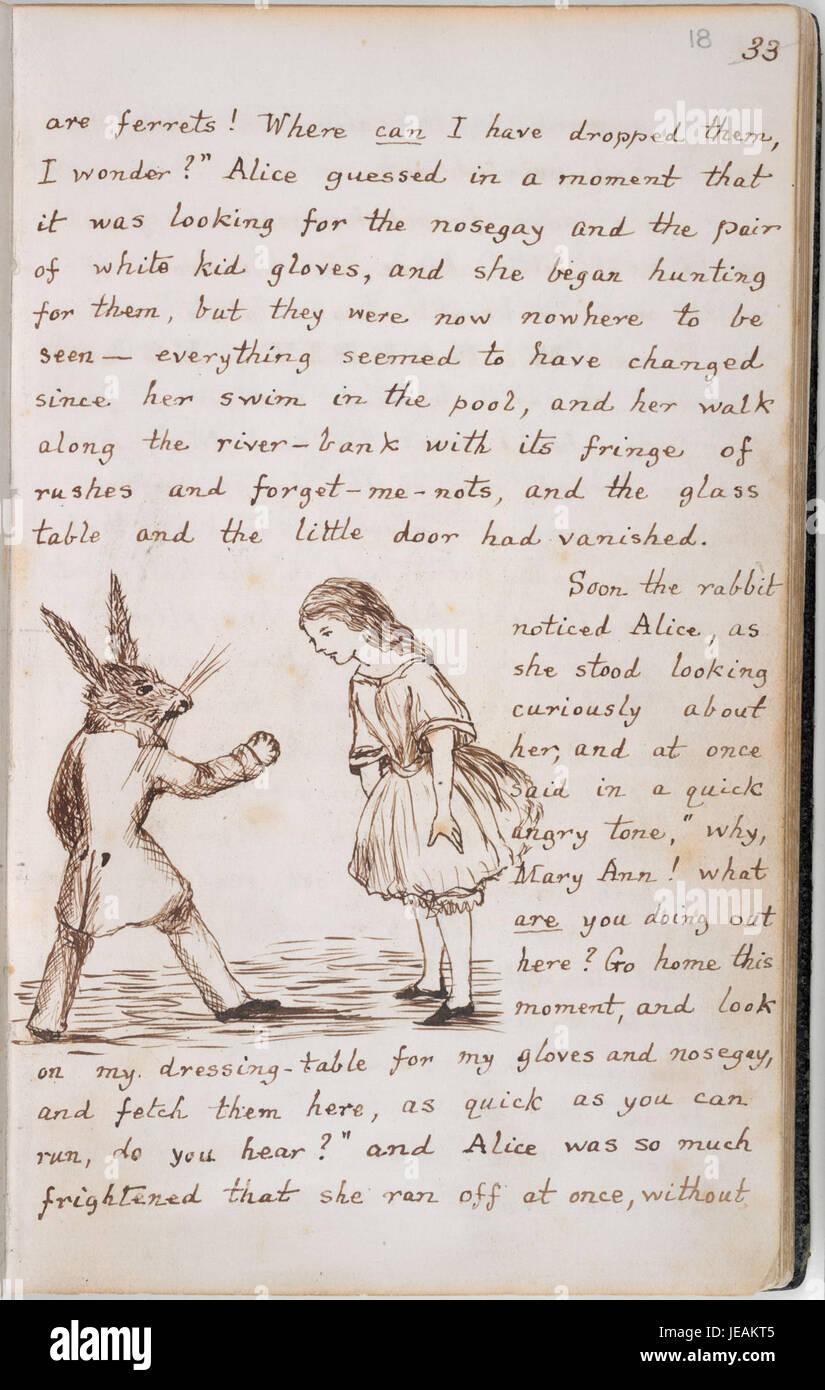 18 33
are ferrets! Where can I have dropped them,
I wonder?" Alice guessed in a moment that
it was looking for the nosegay and the pair
of white kid gloves, and she began hunting
for them, but they were now nowhere to be
seen — everything seemed to have changed
since her swim in the pool, and her walk
along the river-bank with its fringe of
rushes and forget-me-nots, and the glass
table and the little door had vanished.
Soon the rabbit
noticed Alice, as
she stood looking
curiously about
her, and at once
said in a quick
angry tone, "why,
Mary Ann! what
are you doing out
here? Go home this
moment, and look
on my dressing-table for my gloves and nosegay,
and fetch them here, as quick as you can
run, do you hear?" and Alice was so much
frightened that she ran off at once, without
alamy
alamy
alamy
alamy
Image ID: JEAKT5
www.alamy.com